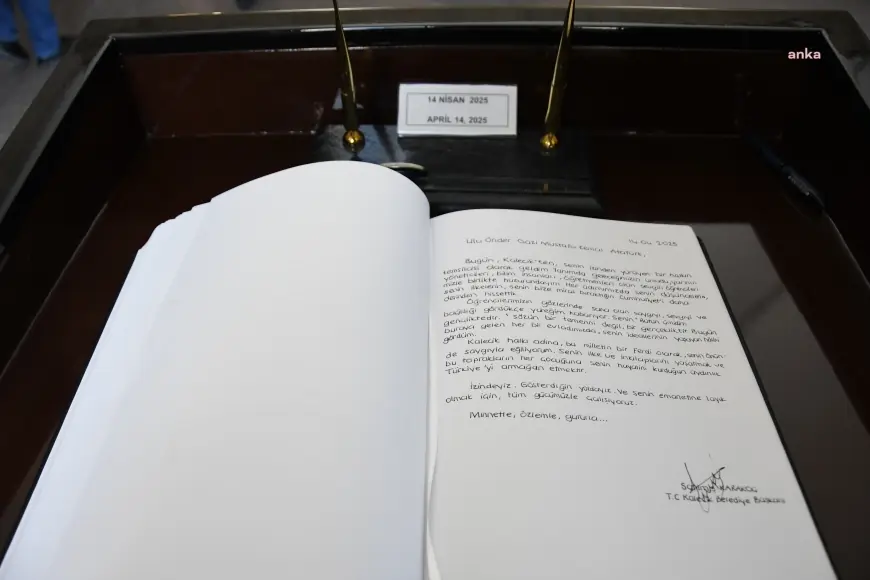 anka
14 NİSAN 2025
APRIL 14, 2025
Ulu Önder Gazi Mustafa Kemal Atatürk, 14.04.2025
Bugün, Kalecik'ten, senin izinden yürüyen bir kadın
temsilcisi olarak geldim. Yanımda geleceğimizin umudu, yarının
yöneticileri, bilim insanları, öğretmenleri olan sevgili öğrencileri
mizle birlikte huzurundayım. Her adımımızda senin düşüncelerini,
senin ilkelerini, senin bize miras bıraktığın Cumhuriyeti daha
derinden hissettik.
Öğrencilerimizin gözlerinde sana olan saygıyı, sevgiyi ve
bağlılığı gördükçe yüreğim kabarıyor. Senin "Bütün ümidim
gençliktedir." sözün bir temenni değil, bir gerçekliktir. Bugün
buraya gelen her bir evladımızda, senin ideallerinin yaşayan halini
gördüm.
Kalecik halkı adına, bu milletin bir ferdi olarak, senin önün
de saygıyla eğiliyorum. Senin ilke ve inkılaplarını yaşatmak ve
bu toprakların her çocuğuna senin hayalini kurduğun aydınlık
Türkiye'yi armağan etmektir.
İzindeyiz. Gösterdiğin yoldayız. Ve senin emanetine layık
olmak için, tüm gücümüzle çalışıyoruz.
Minnetle, özlemle, gururla...
KARAKOÇ
T.C Kalecik Belediye Başkanı